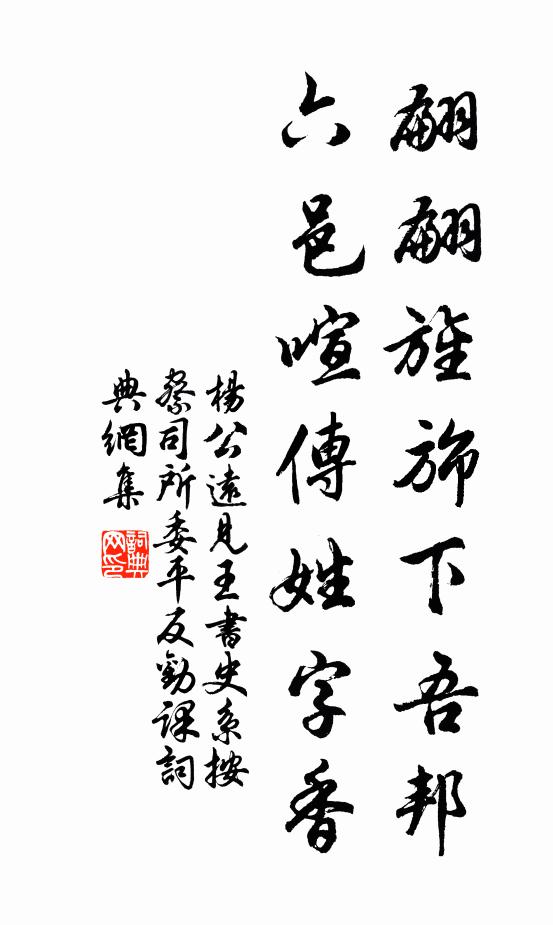 翩翩旌旆下吾邦
六邑喧傳姓字香
楊公遠見王書史系按
察司所委平反勸課詞
典網集
詞典
网印